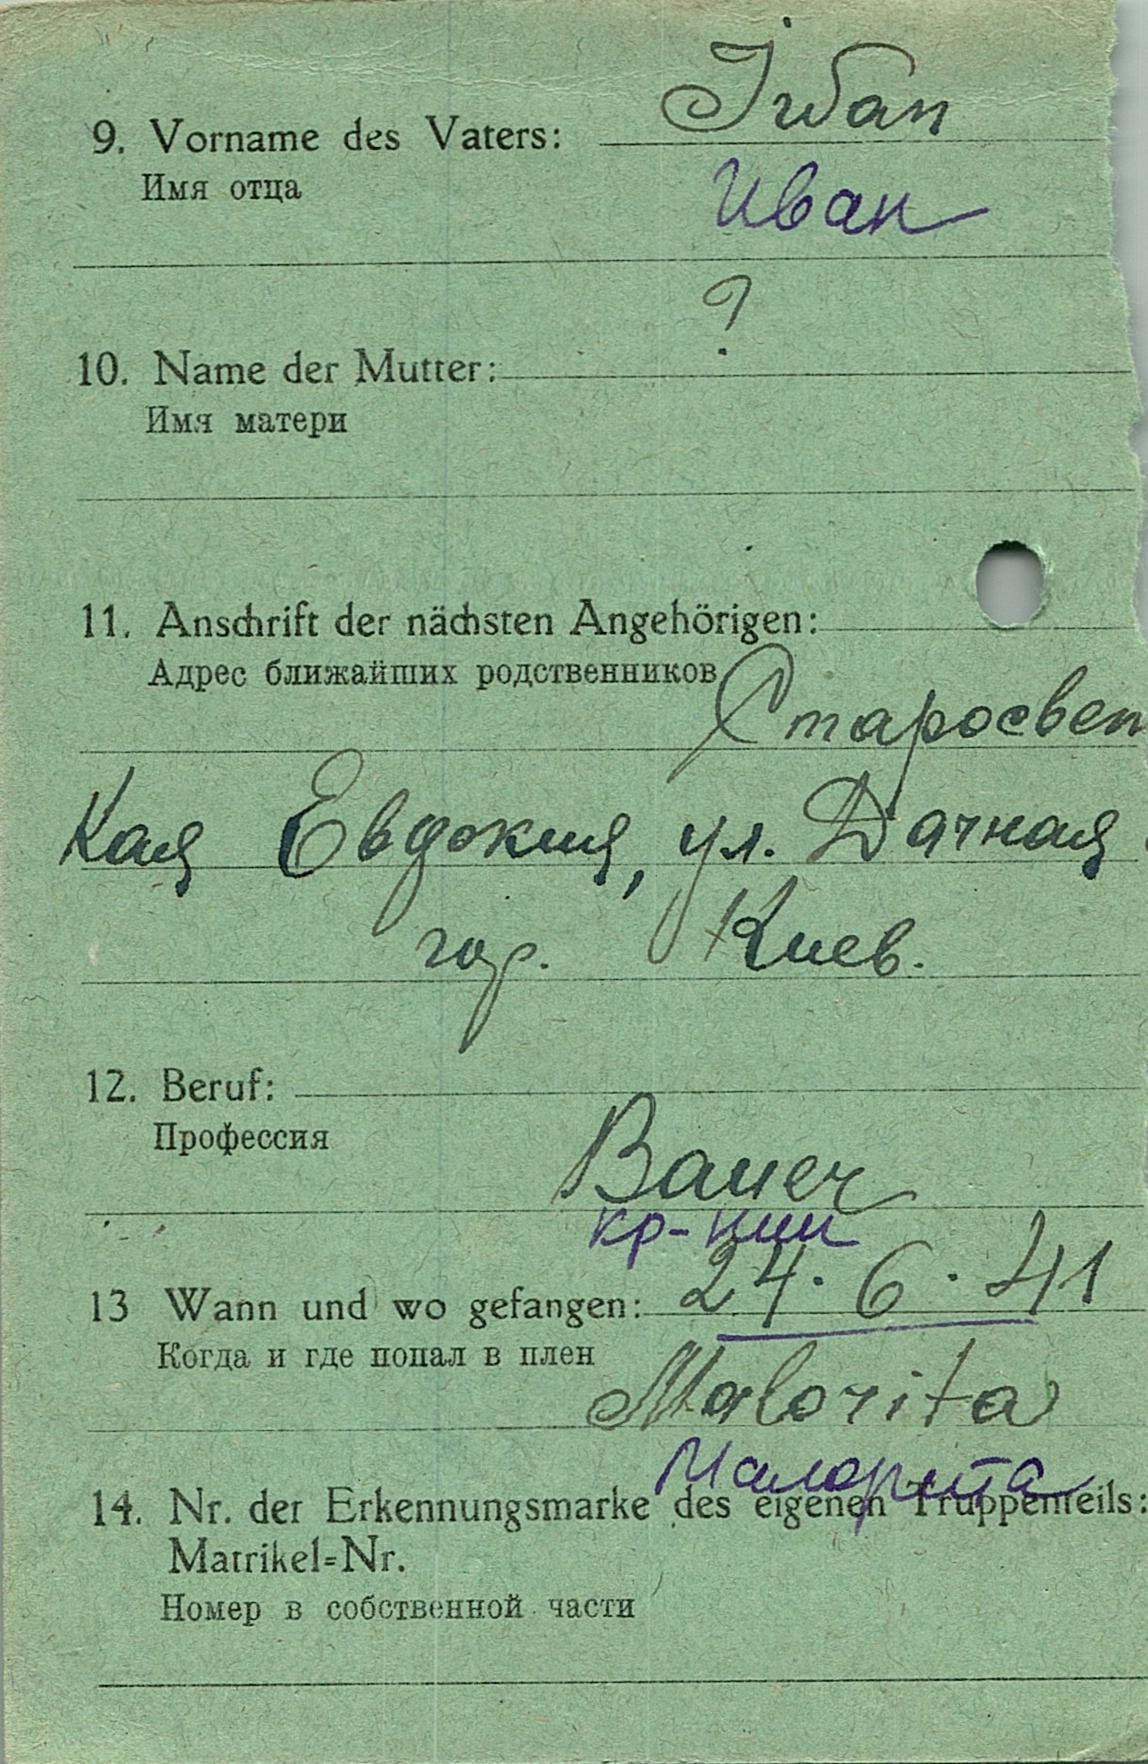 9. Vorname des Vaters: Iwan
Имя отца
Иван
?
10. Name der Mutter:
Имя матери
11. Anschrift der nächsten Angehörigen:
Адрес ближайших родственников
Старосвет
кая Евдокия, ул. Дачная
гор. Киев.
12. Beruf:
Профессия
Bauer
кр-нин
13 Wann und wo gefangen: 24. 6. 41
Когда и где попал в плен
Malorita
Малорита
14. Nr. der Erkennungsmarke des eigenen Truppenteils:
Matrikel=Nr.
Номер в собственной части